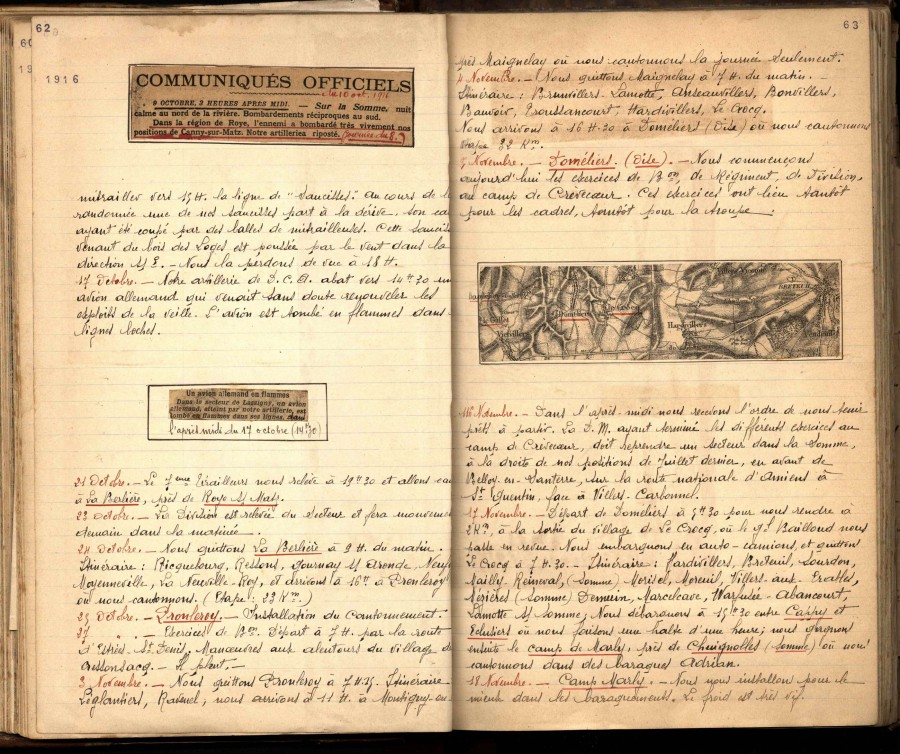 62
1916
COMMUNIQUÉS OFFICIELS
du 10 oct. 1916
9 OCTOBRE, 3 HEURES APRÈS MIDI. — Sur la Somme, nuit
calme au nord de la rivière. Bombardements réciproques au sud.
Dans la région de Roye, l'ennemi a bombardé très vivement nos
positions de Canny-sur-Matz. Notre artillerie a riposté.
mitrailler vers 15 H. la ligne de "Saucisses". Au cours de
randonnée une de nos saucisses part à la dérive, son
ayant été coupé par des balles de mitrailleuses. Cette
venant du bois des Loges est poussée par le vent dans la
direction S/E. — Nous la perdons de vue à 18 H.
17 Octobre. — Notre artillerie de D.C.A. abat vers 14H30 un
avion allemand qui venait sans doute renouveler les
exploits de la veille. L'avion est tombé en flammes dans
lignes boches.
Un avion allemand en flammes
Dans le secteur de Lassigny, un avion
allemand, atteint par notre artillerie, est
tombé en flammes dans ses lignes, dans
l'après midi du 17 octobre (14H30)
21 Octobre. — Le 7eme Tirailleurs nous relève à 19H30 et allons
à La Berlière, près de Roye S/ Matz.
23 Octobre. — La Division est relevée du Secteur et fera mouvement
demain dans la matinée —
24 Octobre. — Nous quittons La Berlière à 9 H. du matin.
Itinéraire : Ricquebourg, Ressons, Gournay S/ Aronde,
Moyenneville, La Neuville-Roy, et arrivons à 16H à Pronleroy
où nous cantonnons. (Etape : 23 Km)
25 Octobre. — Pronleroy. — Installation du Cantonnement.
27 " — Exercices de Bon. Départ à 7 H. par la route
d'Estrées-St-Denis. Manœuvres aux alentours du village de
Cressonsacq. — Il pleut. —
3 Novembre. — Nous quittons Pronleroy à 7H15. Itinéraire
Léglantiers, Ravenel, nous arrivons à 11 H. à Montigny-
63
près Maignelay où nous cantonnons la journée seulement.
4 Novembre. — Nous quittons Maignelay à 7 H. du matin. —
Itinéraire : Brunvillers-Lamotte, Ansauvillers, Bonvillers,
Beauvoir, Troussancourt, Hardivillers, Le Crocq.
Nous arrivons à 16 H.30 à Doméliers (Oise) où nous cantonnons
étape 32 Km.
5 Novembre. — Doméliers. (Oise). — Nous commençons
aujourd'hui les exercices de Bon, de Régiment, de Division,
au camp de Crèvecœur. Ces exercices ont lieu tantôt
pour les cadres, tantôt pour la troupe —
BRETEUIL
Hardivillers
Viefvillers
16 Novembre. — Dans l'après-midi nous recevons l'ordre de nous tenir
prêts à partir. La D.M. ayant terminé les différents exercices au
camp de Crèvecœur, doit reprendre un secteur dans la Somme,
à la droite de nos positions de Juillet dernier, en avant de
Belloy-en-Santerre, sur la route nationale d'Amiens à
St Quentin, face à Villers-Carbonnel.
17 Novembre. — Départ de Doméliers à 5H30 pour nous rendre à
2Km, à la sortie du village de Le Crocq, où le Gal Bailloud nous
passe en revue. Nous embarquons en auto-camions, et quittons
Le Crocq à 7 H.30. — Itinéraire : Hardivillers, Breteuil, Sourdon,
Mailly-Raineval, (Somme) Morisel, Moreuil, Villers-aux-Erables,
Mézières (Somme) Demuin, Marcelcave, Warfusée-Abancourt,
Lamotte S/ Somme, Nous débarquons à 15H30 entre Cappy et
Eclusiers où nous faisons une halte d'une heure; nous gagnons
ensuite le camp de Marly, près de Chuignolles (Somme) où nous
cantonnons dans des baraques Adrian.
18 Novembre. — Camp Marly. — Nous nous installons pour le
mieux dans les baraquements. Le froid est très vif.